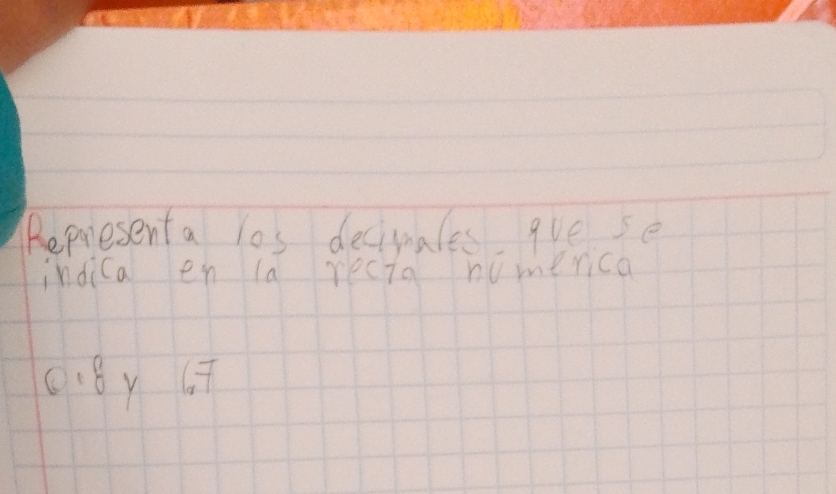 Representa los decimales que se
indica en la recta númerica
0.8 y 1.7